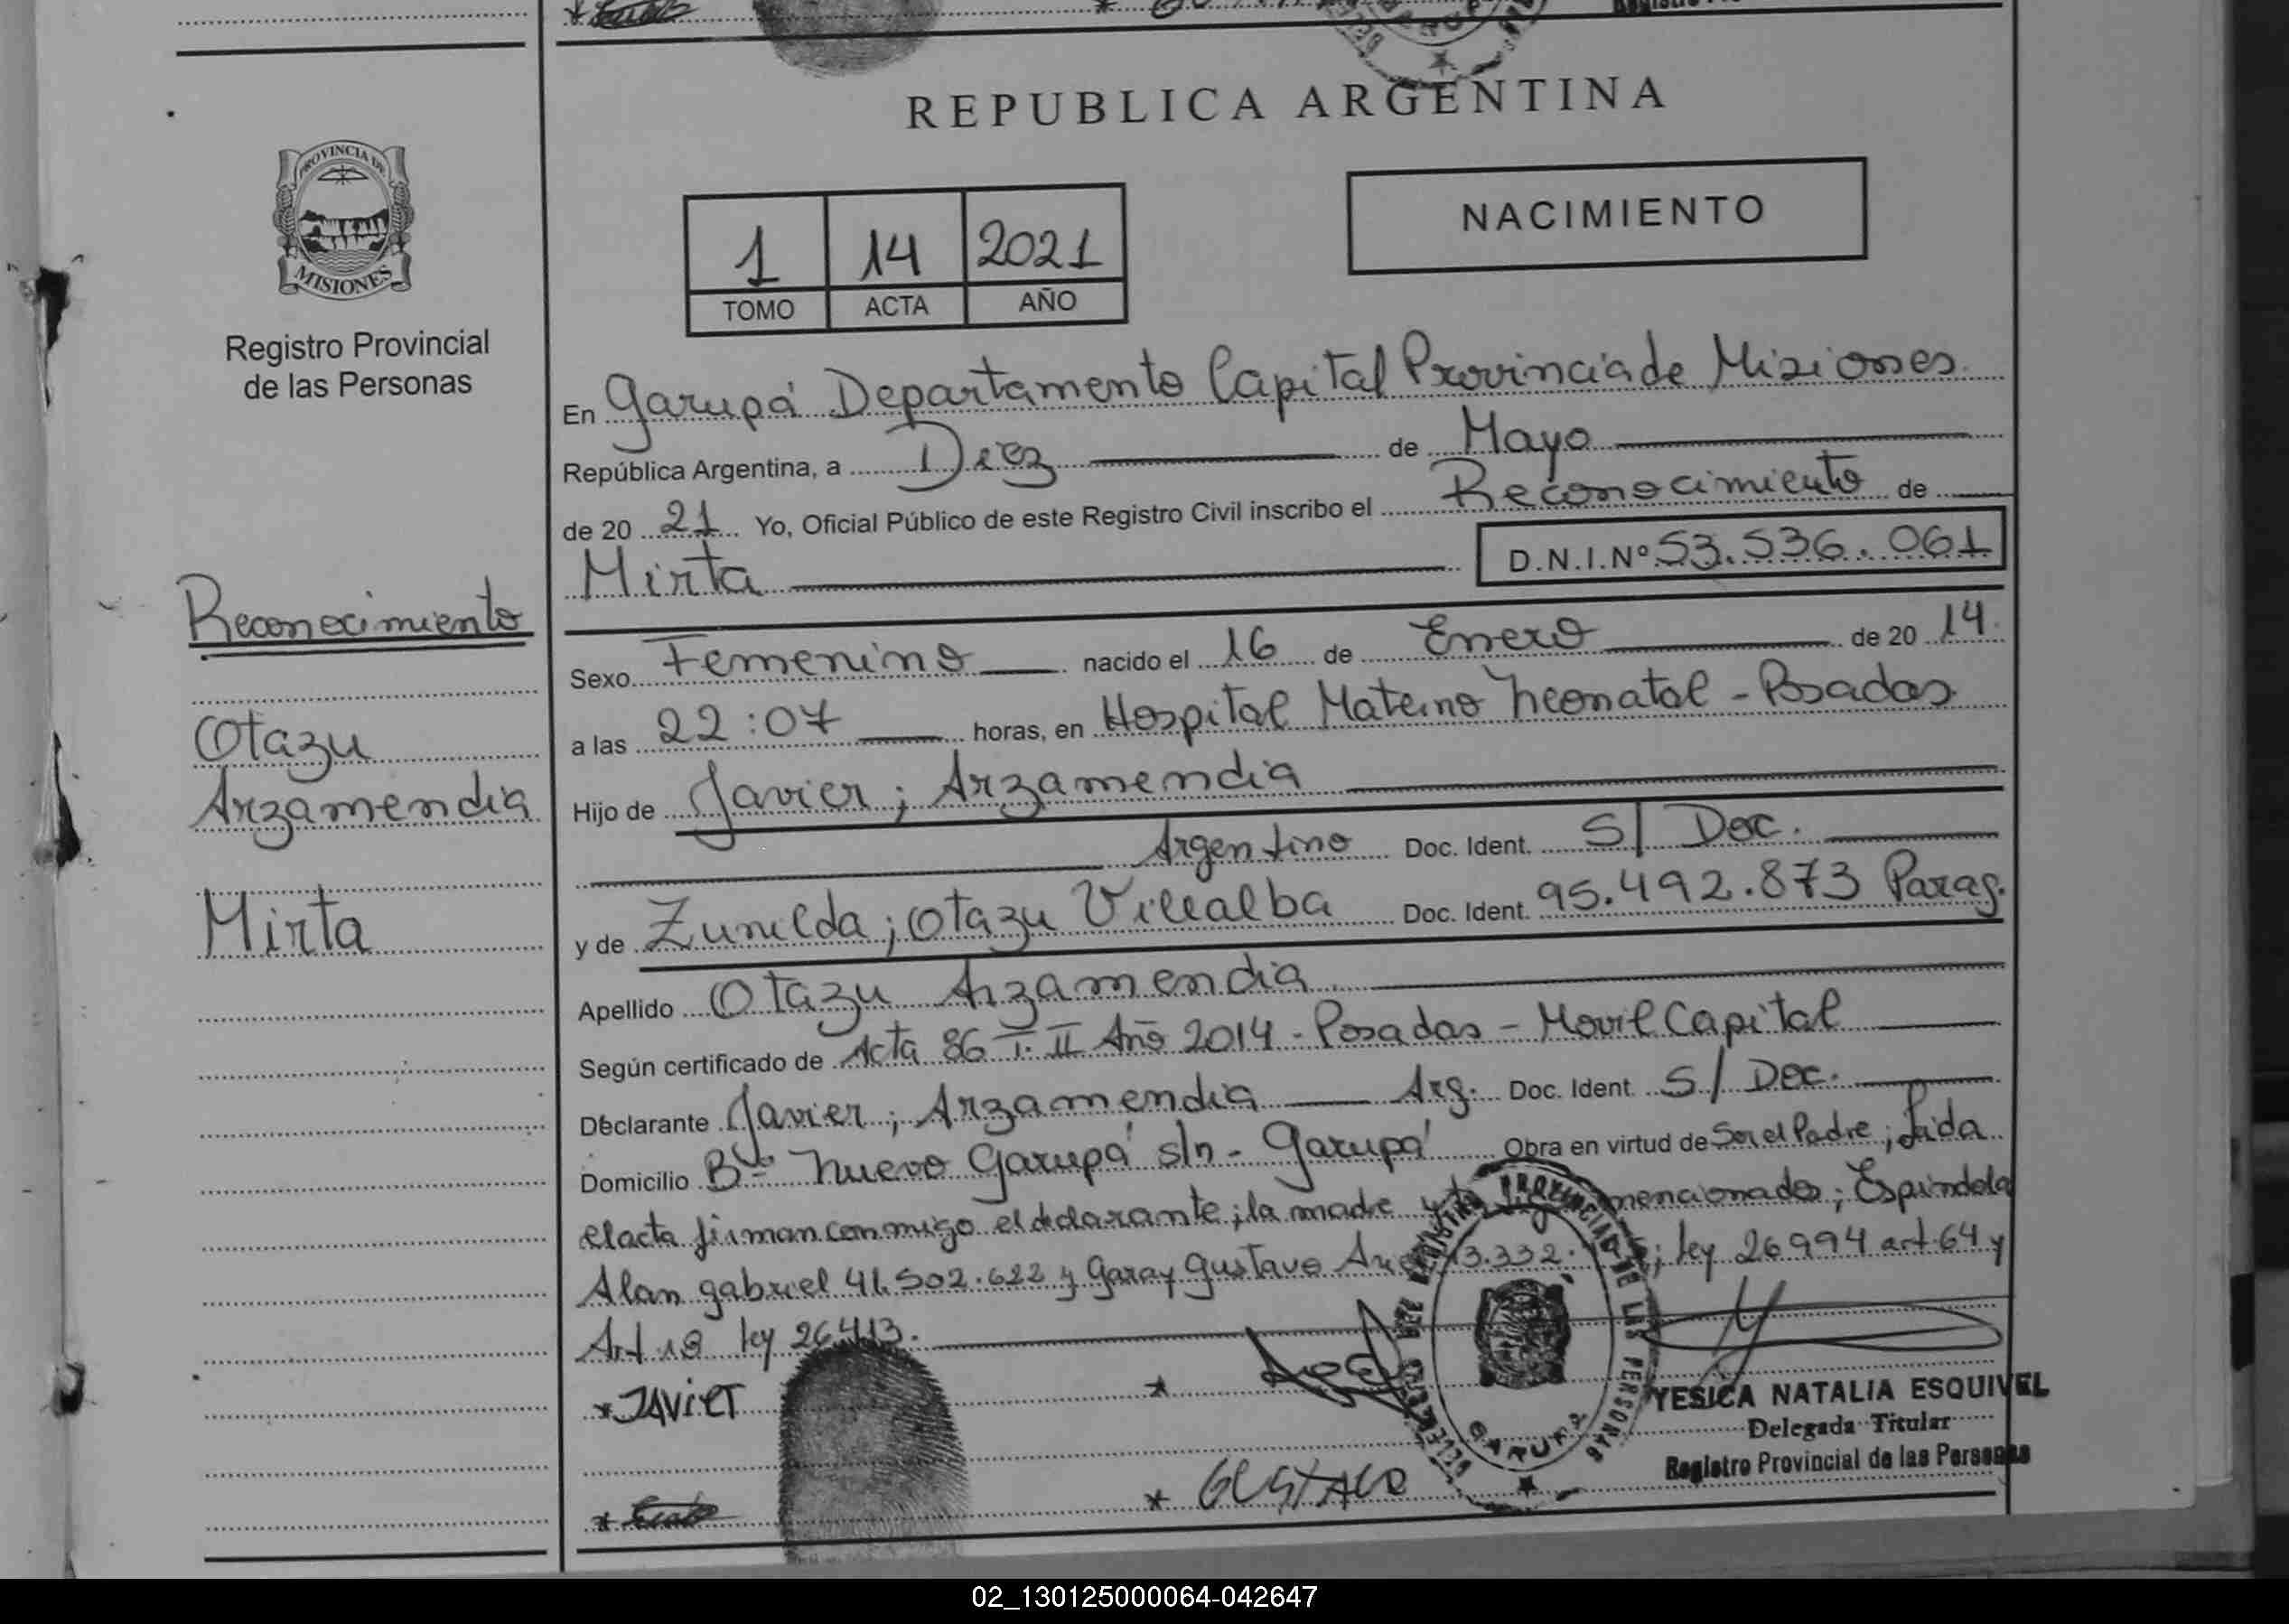 REPUBLICA ARGENTINA
PROVINCIA DE
MISIONES
Registro Provincial
de las Personas
1 14 2021
TOMO ACTA AÑO
NACIMIENTO
En Garupá Departamento Capital Provincia de Misiones
República Argentina, a Diez de Mayo
de 20 21 Yo, Oficial Público de este Registro Civil inscribo el Reconocimiento de
Mirta D.N.I.Nº 53.536.061
Reconocimiento
Otazu
Arzamendia
Mirta
Sexo Femenino nacido el 16 de Enero de 20 14
a las 22:07 horas, en Hospital Materno Neonatal - Posadas
Hijo de Javier; Arzamendia
Argentino Doc. Ident. S/ Doc.
y de Zunilda; Otazu Villalba Doc. Ident. 95.492.873 Parag.
Apellido Otazu Arzamendia
Según certificado de Acta 86 T. II Año 2014 - Posadas - Movil Capital
Declarante Javier; Arzamendia Arg. Doc. Ident. S/ Doc.
Domicilio Bº Nuevo Garupá s/n - Garupá Obra en virtud de Ser el Padre; Leida
el acta firman conmigo el declarante; la madre y mencionados; Espindola
Alan Gabriel 41.502.622 y Garay Gustavo 13.332. ; ley 26994 art 64 y
Art 18 ley 26.413.
* JAViEr
*
* GUSTAVO
*
PROVINCIAL DE LAS PERSONAS
GARUPA
YESICA NATALIA ESQUIVEL
Delegada Titular
Registro Provincial de las Personas
02_130125000064-042647